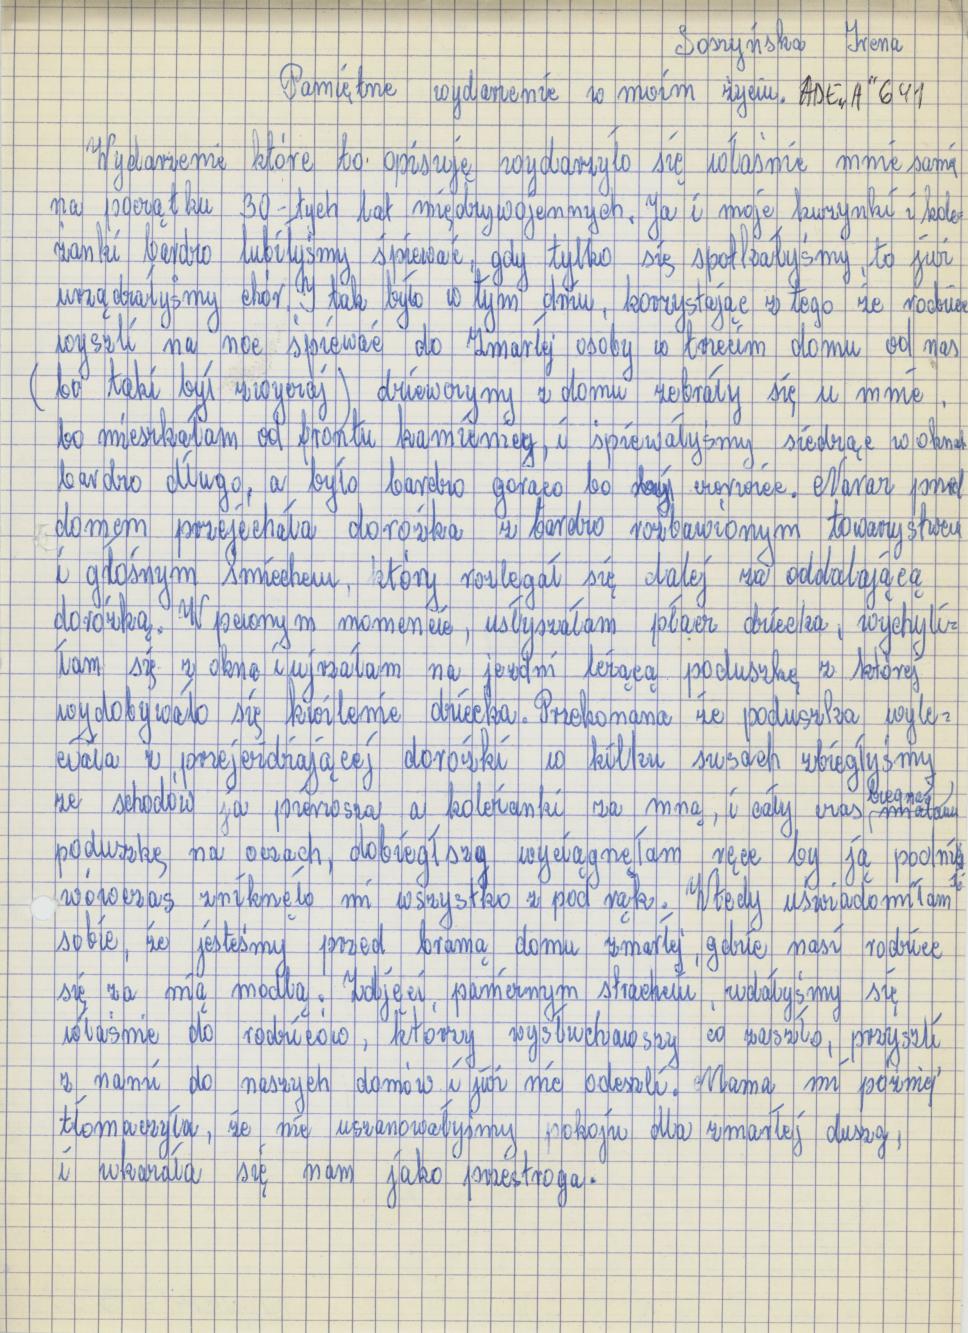 Soszyńska Irena
Pamiętne wydarzenie w moim życiu. ADE„A” 641
Wydarzenie które to opisuję wydarzyło się właśnie mnie samej
na początku 30-tych lat międzywojennych. Ja i moje kuzynki i kole-
żanki bardzo lubiłyśmy śpiewać, gdy tylko się spotkałyśmy, to już
urządzałyśmy chór. I tak było w tym dniu, korzystając z tego że rodzice
wyszli na noc śpiewać do zmarłej osoby w trzecim domu od nas
(bo taki był zwyczaj) dziewczyny z domu zebrały się u mnie,
bo mieszkałam od frontu kamienicy, i śpiewałyśmy siedząc w oknach
bardzo długo, a było bardzo gorąco bo czerwiec. Naraz przed
domem przejechała dorożka z bardzo rozbawionym towarzystwem
i głośnym śmiechem, który rozlegał się dalej za oddalającą
dorożką. W pewnym momencie, usłyszałam płacz dziecka, wychyli=
łam się z okna i ujrzałam na jezdni leżącą poduszkę z której
wydobywało się kwilenie dziecka. Przekonana że poduszka wyle=
ciała z przejeżdżającej dorożki w kilku susach zbiegłyśmy
ze schodów ja pierwsza a koleżanki za mną, i cały czas biegnąc, miałam
poduszkę na oczach, dobiegłszy wyciągnęłam ręce by ją podnieść
wówczas zniknęło mi wszystko z pod rąk. Wtedy uświadomiłam
sobie, że jesteśmy przed bramą domu zmarłej, gdzie nasi rodzice
się za nią modlą. Zdjęci, panicznym strachem, udałyśmy się
właśnie do rodziców, którzy wysłuchawszy co zaszło, przyszli
z nami do naszych domów i już nie odeszli. Mama mi później
tłomaczyła, że nie uszanowałyśmy pokoju dla zmarłej duszy,
i ukazała się nam jako przestroga.